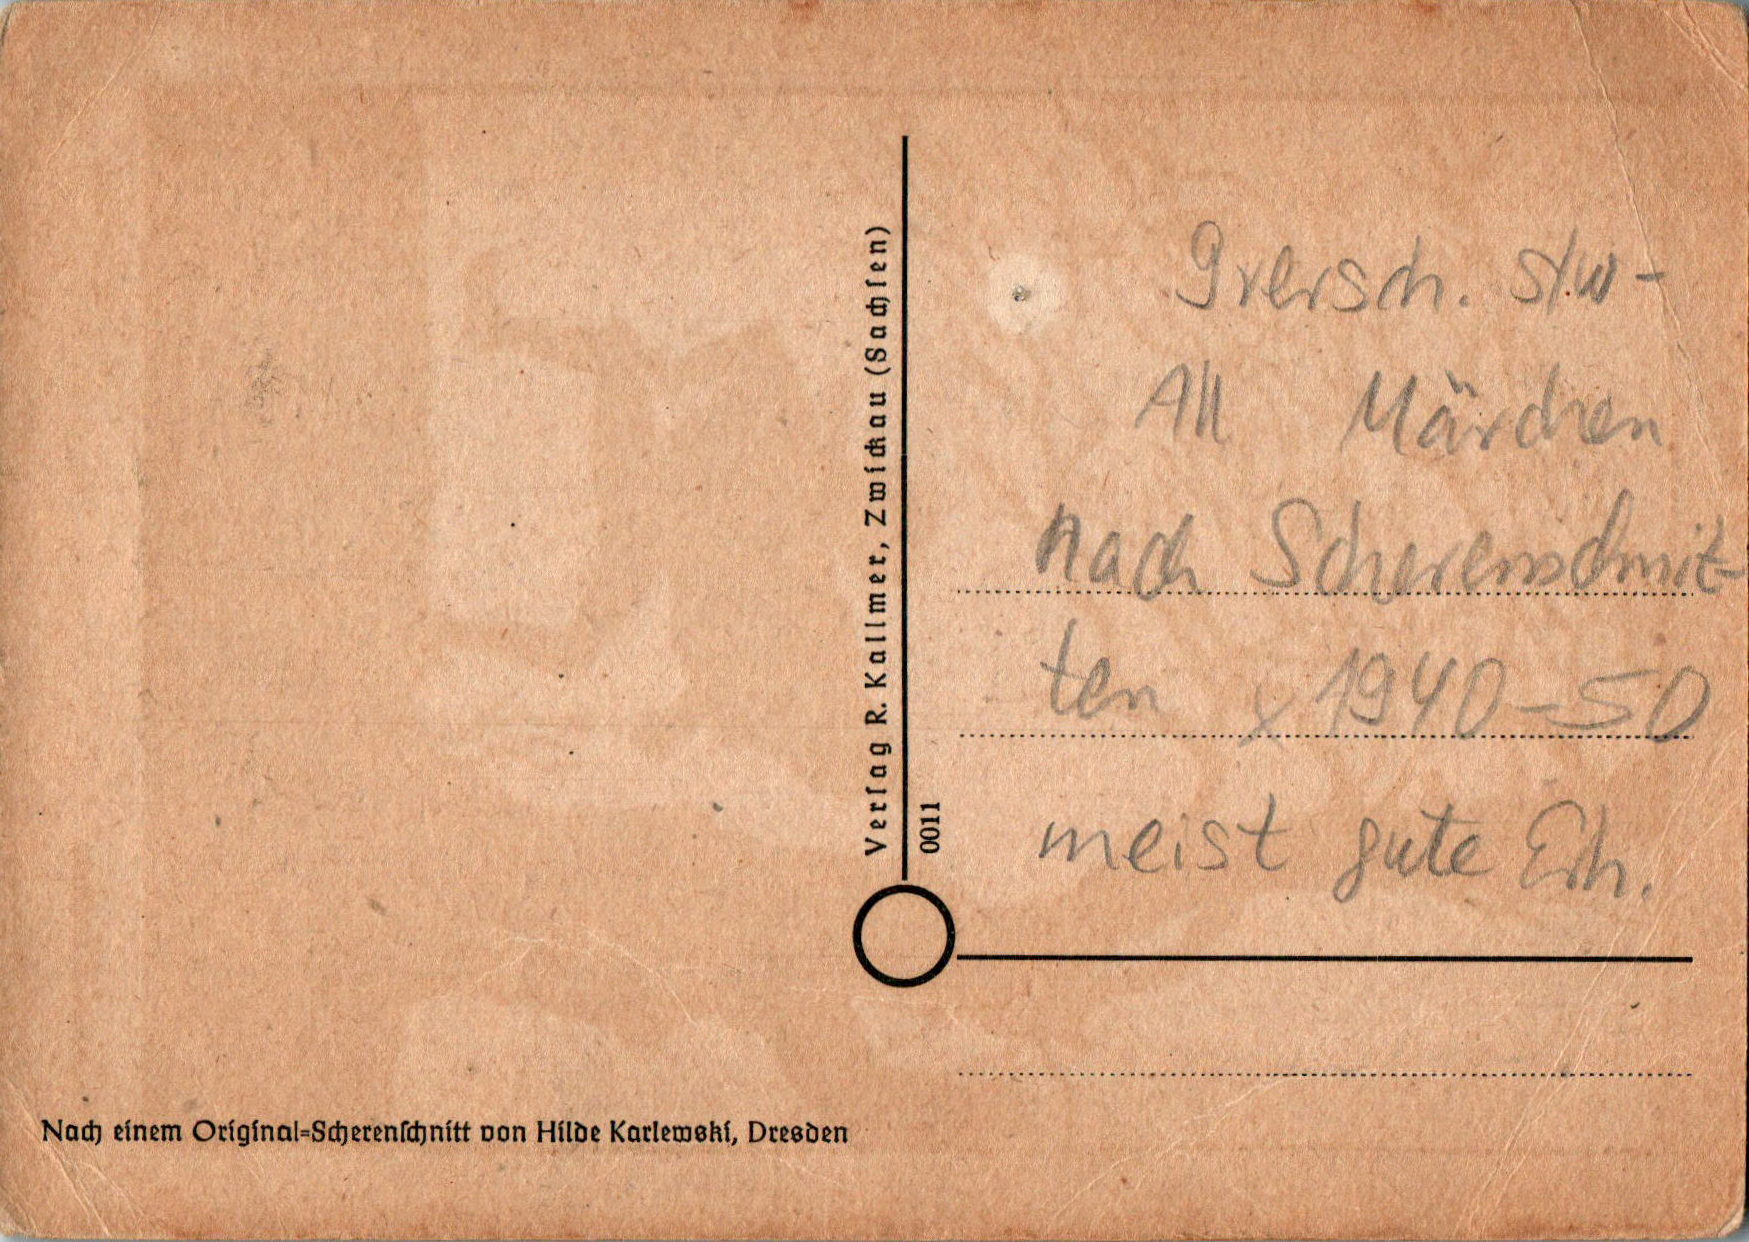 Verlag R. Kallmer, Zwickau (Sachsen)
0011
9 versch. s/w-
AK Märchen
nach Scherenschnit-
ten x 1940-50
meist gute Erh.
Nach einem Original=Scherenschnitt von Hilde Karlewski, Dresden